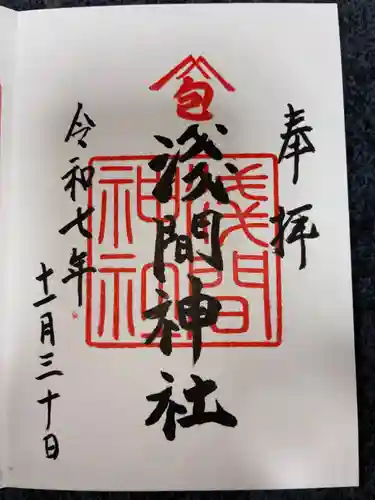 奉拝
包
浅間神社
浅間
神社
令和七年
十一月三十日